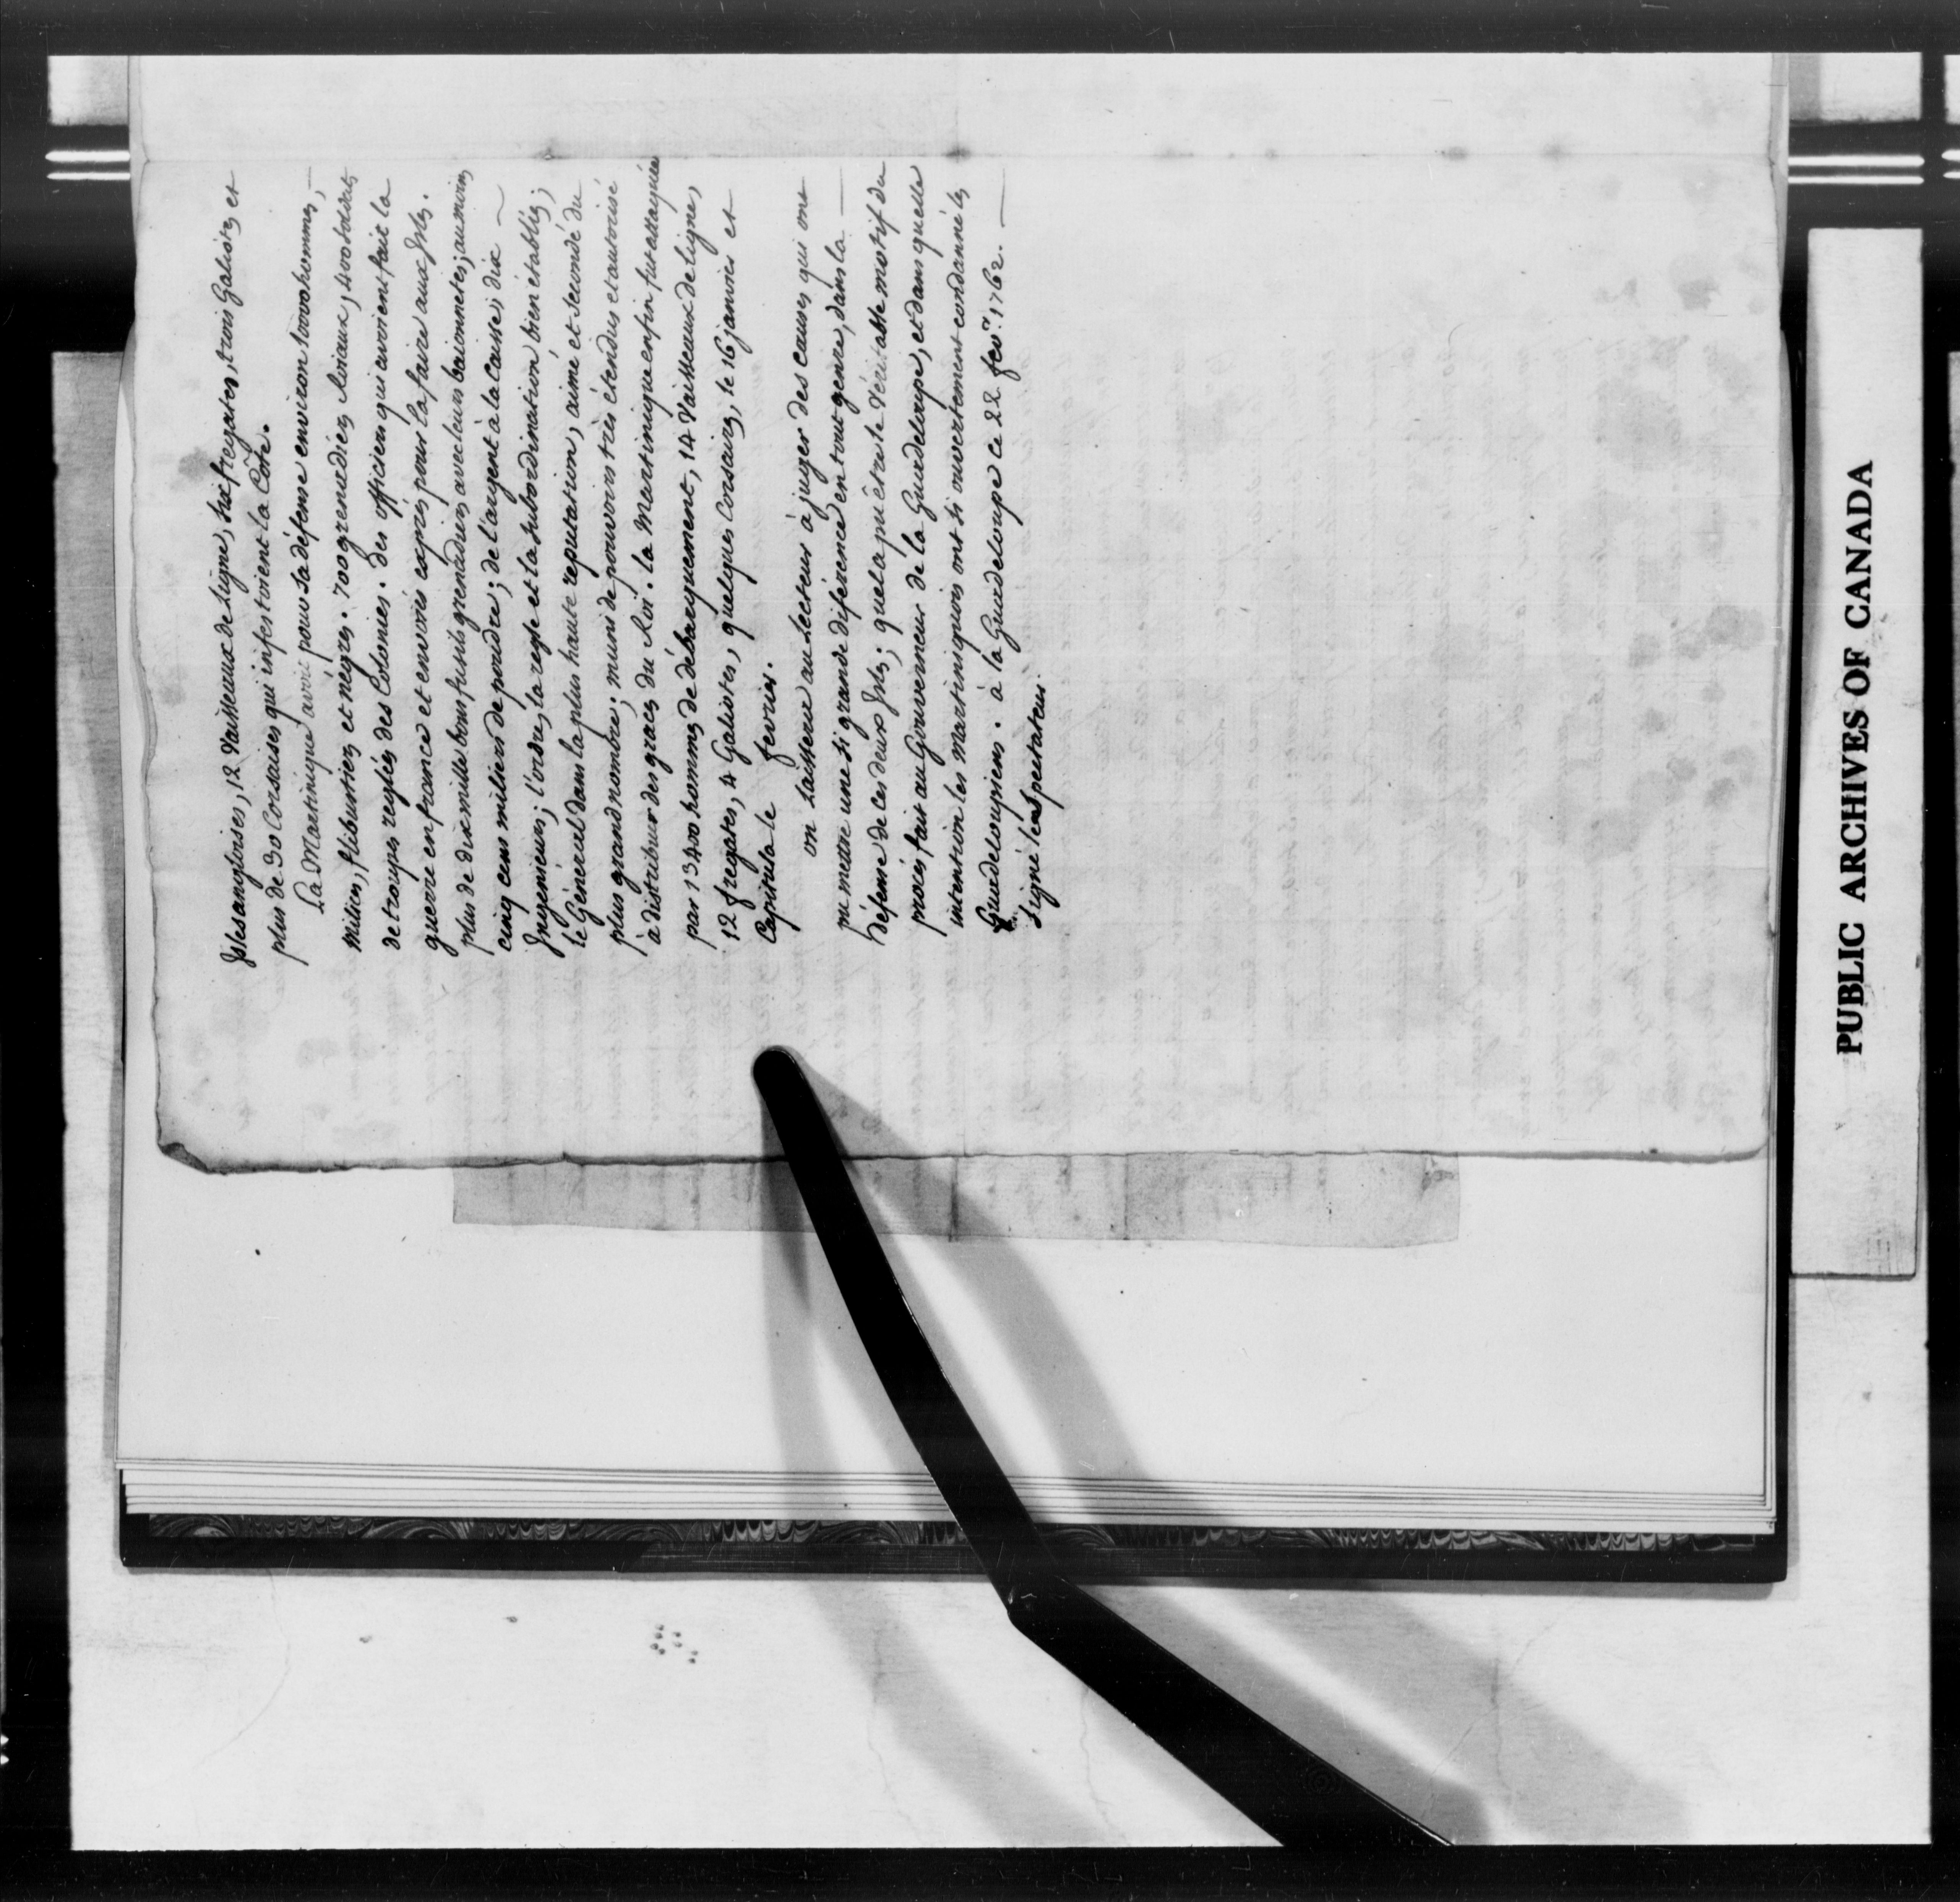 Isles angloises, 12 Vaisseaux de ligne, six fregates, trois Galiotes et
plus de 30 Corsaires qui infestoient la Côte.
La Martinique avoit pour sa défense environ 10000 hommes,
milices, flibustiers et négres. 700 grenadiers Roiaux, 400 soldats
de troupes reglés des Colonies. Des officiers qui avoient fait la
guerre en france et envoiés exprés pour la faire aux Isles.
plus de dix mille bons fusils grenadiers avec leurs baionnetes; au moins
cinq cens miliers de poudre; de l'argent à la Caisse; dix
Ingenieurs; l'ordre, la regle et la subordination bien établis;
le Géneral dans la plus haute reputation, aimé et secondé du
plus grand nombre; muni de pouvoirs très étendus et autorisé
à distribuer des graces du Roi. la Martinique enfin fut attaquée
par 13400 hommes de débarquement, 14 Vaisseaux de ligne,
12 fregates, 4 Galiotes, quelques Corsaires, le 16 janvier et
Capitula le fevrier.
on Laissera au Lecteur à juger des causes qui ont
pu mettre une si grande diférence en tout genre, dans la
défense de ces deux Isles; quel a pu être le Véritable motif du
procés fait au Gouverneur de la Guadeloupe, et dans quelle
intention les Martiniquois ont si ouvertement condanné les
Guadeloupiens. à la Guadeloupe ce 22 fevr. 1762.
signé le Spectateur.
PUBLIC ARCHIVES OF CANADA